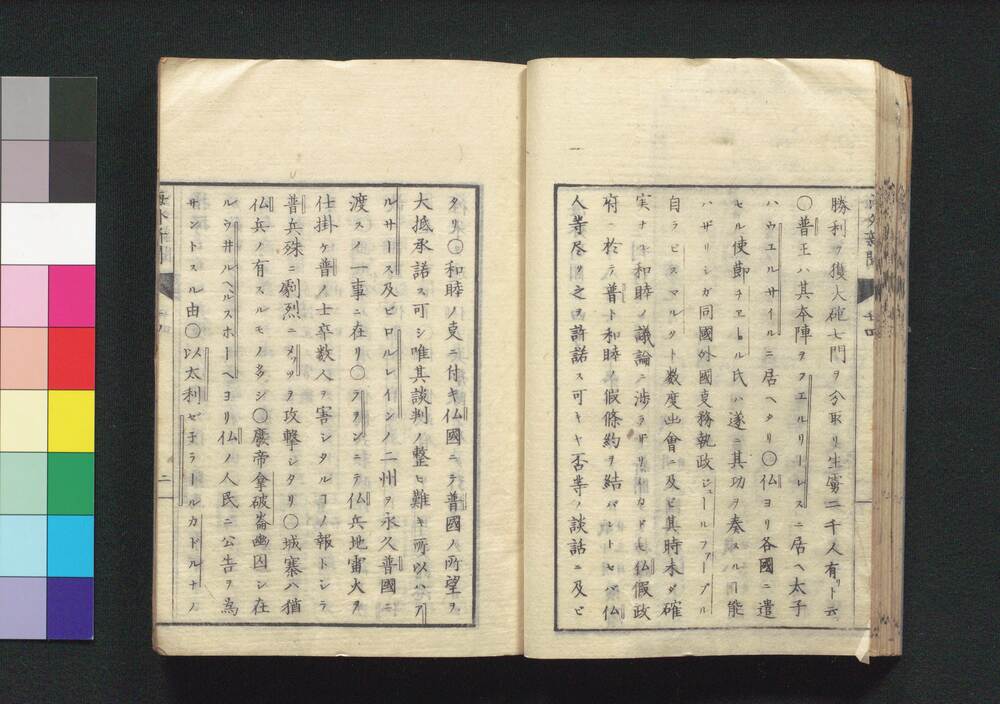 勝利ヲ獲大砲七門ヲ分取リ生虜二千人有リト云
〇普王ハ其本陣ヲフエルリーレスニ居ヘ太子
ハウエルサイルニ居ヘタリ〇仏ヨリ各國ニ遣
セル使節チヱール氏ハ遂ニ其功ヲ奏スルヿ能
ハザリシガ同國外國叓務執政ジュールファーブル
自ラビスマルクト数度出會ニ及ビ其時未ダ確
実ナル和睦ノ議論ニ渉ラザリ
仏假政
府ニ於テ普ト和睦ノ假條約ヲ結バントセバ仏
人等尽ク之ヲ許諾ス可キヤ否等ノ談話ニ及ビ
タリ〇和睦ノ叓ニ付キ仏國ニテ普國ノ所望ヲ
大抵承諾ス可シ唯其談判ノ整ヒ難キ所以ハア
ルサース及ビロルレインノ二州ヲ永久普國ニ
渡スノ一事ニ在リ〇ラヲンニテ仏兵地雷火ヲ
仕掛ケ普ノ士卒数人ヲ害シタルコノ報トシテ
普兵殊ニ劇烈ニメッツヲ攻撃シタリ〇城寨ハ猶
仏兵ノ有スルモノ多シ〇廢帝拿破崙幽囚シ在
ルウ井ルヘルスホーヘヨリ仏ノ人民ニ公告ヲ為
サントスル由〇以太利ゼ子ラールカドルナノ
二